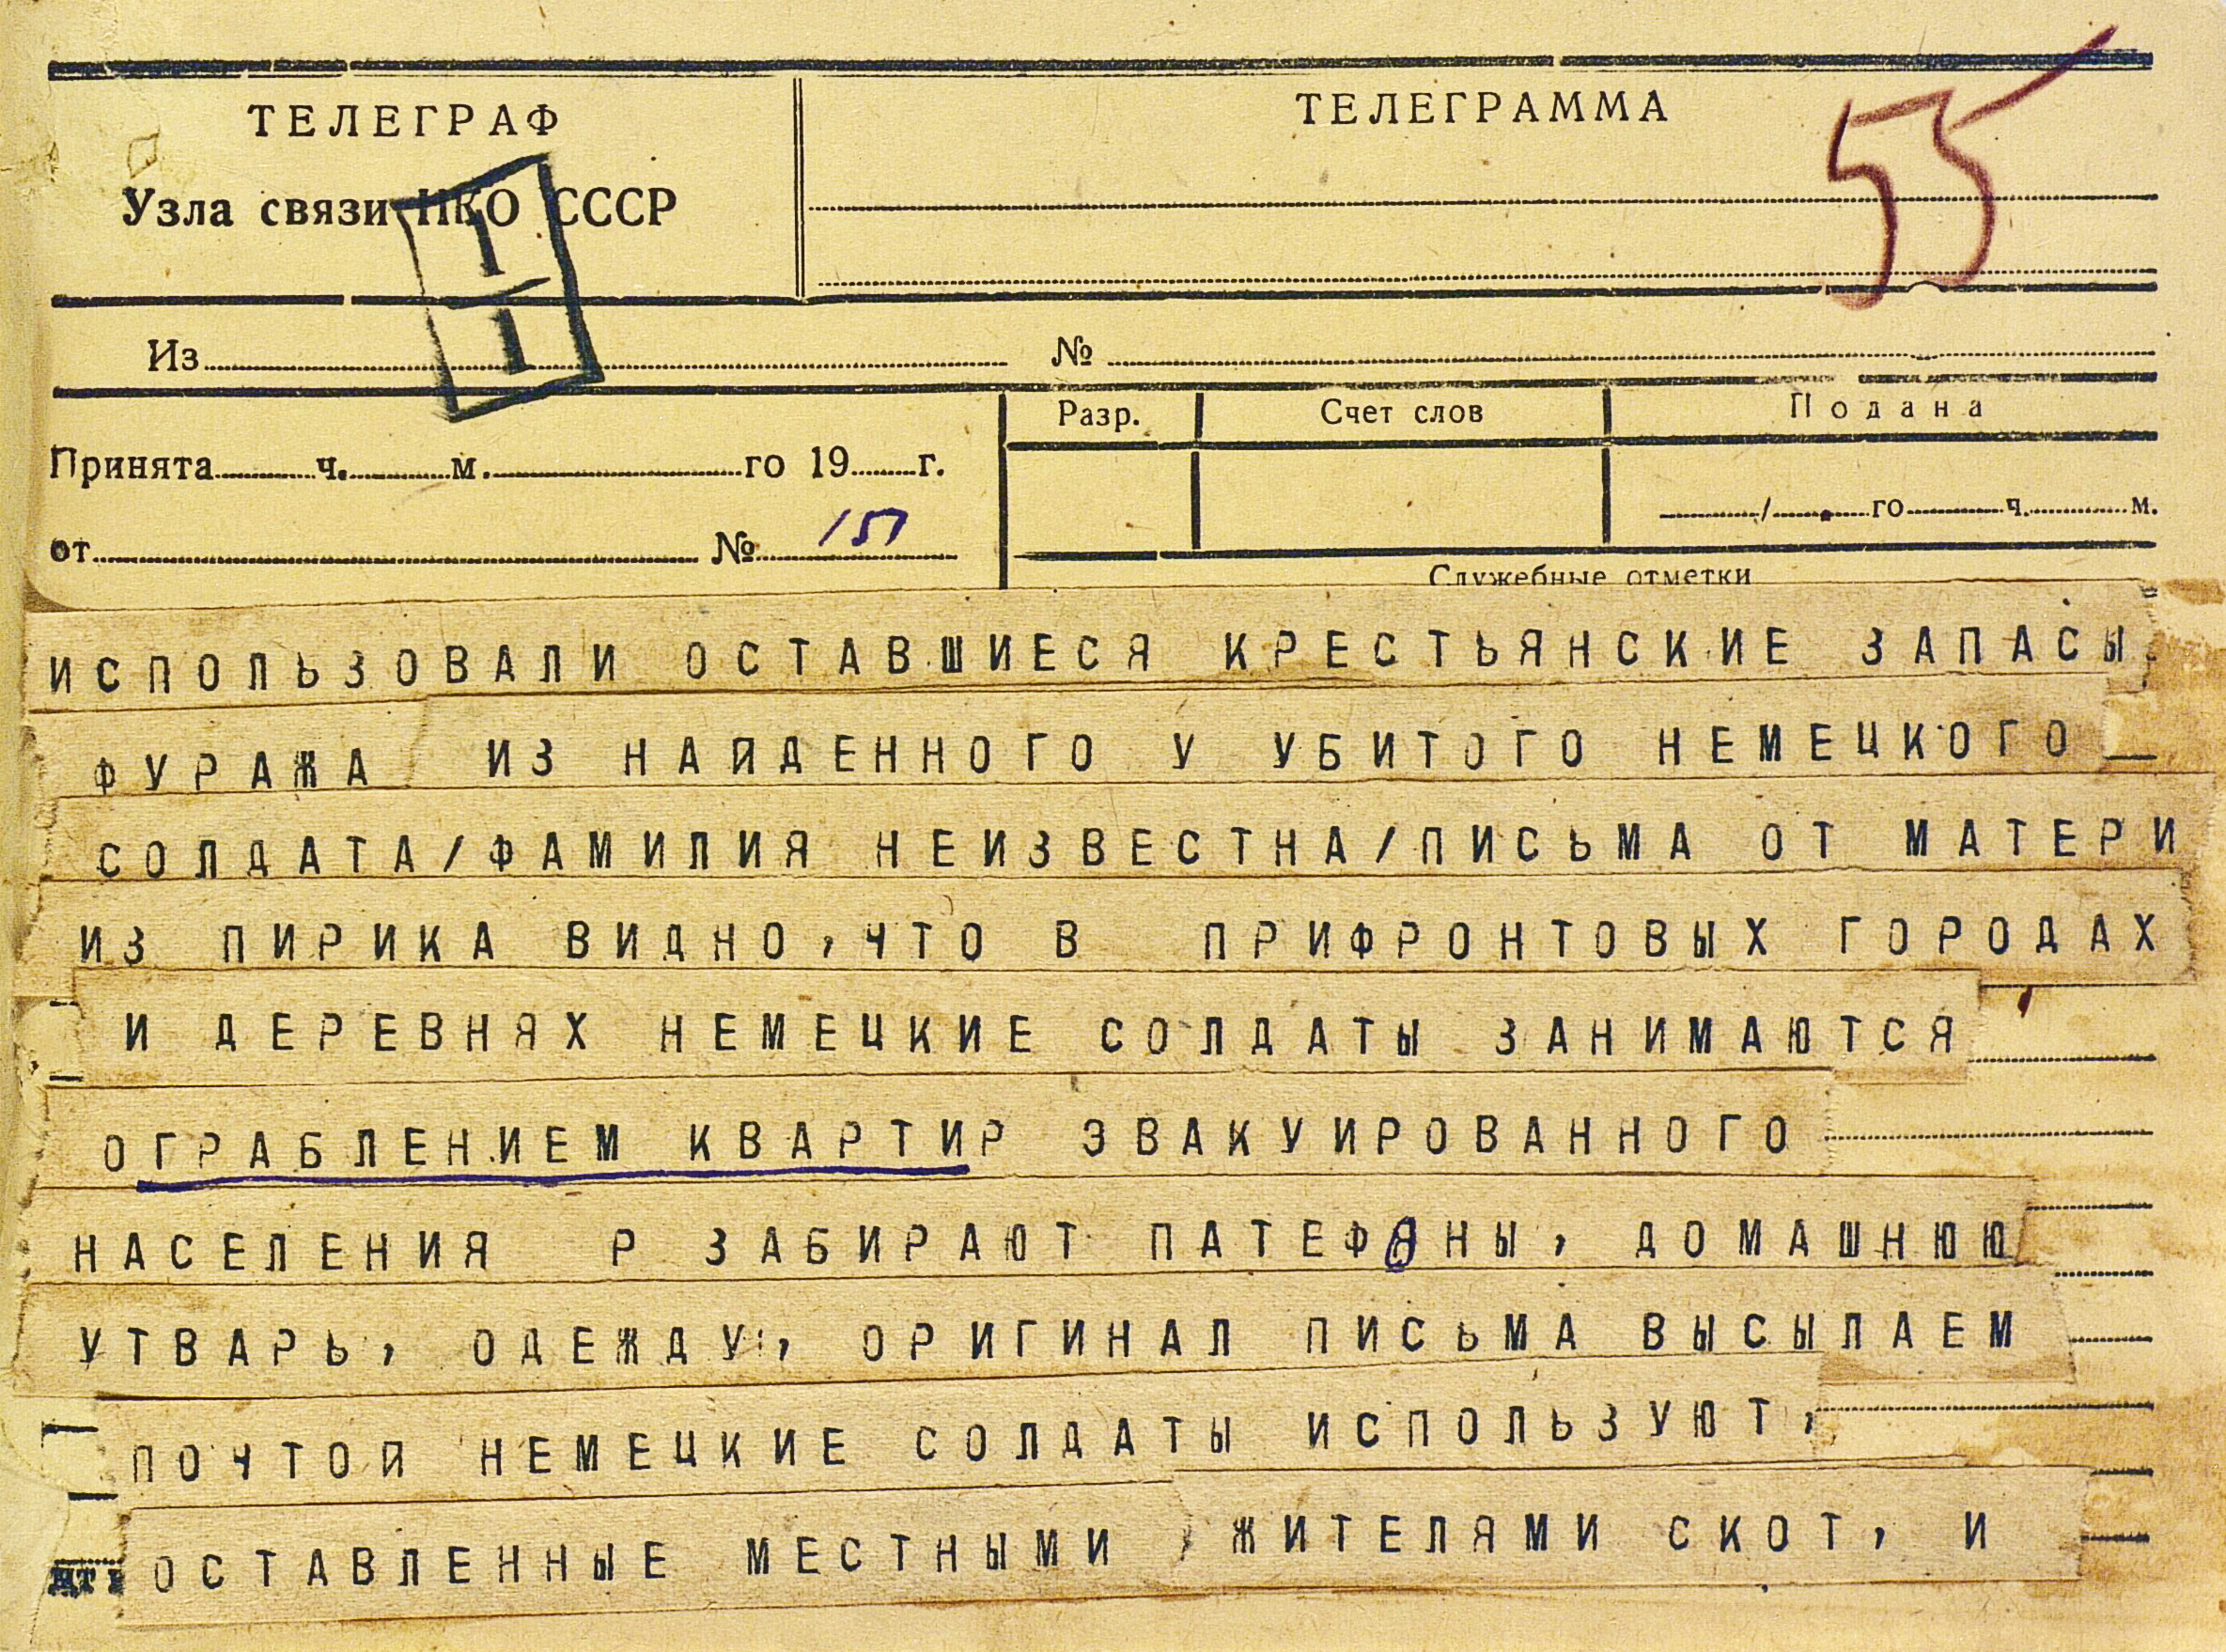 ТЕЛЕГРАФ
Узла связи НКО СССР
ТЕЛЕГРАММА
55
1
1
Из
№
Принята ч. м. го 19 г.
от № 151
Разр.
Счет слов
Подана
/ го ч. м.
Служебные отметки
ИСПОЛЬЗОВАЛИ ОСТАВШИЕСЯ КРЕСТЬЯНСКИЕ ЗАПАСЫ
ФУРАЖА ИЗ НАЙДЕННОГО У УБИТОГО НЕМЕЦКОГО
СОЛДАТА/ФАМИЛИЯ НЕИЗВЕСТНА/ПИСЬМА ОТ МАТЕРИ
ИЗ ПИРИКА ВИДНО,ЧТО В ПРИФРОНТОВЫХ ГОРОДАХ
И ДЕРЕВНЯХ НЕМЕЦКИЕ СОЛДАТЫ ЗАНИМАЮТСЯ
ОГРАБЛЕНИЕМ КВАРТИР ЭВАКУИРОВАННОГО
НАСЕЛЕНИЯ Р ЗАБИРАЮТ ПАТЕФОНЫ, ДОМАШНЮЮ
УТВАРЬ, ОДЕЖДУ, ОРИГИНАЛ ПИСЬМА ВЫСЫЛАЕМ
ПОЧТОЙ НЕМЕЦКИЕ СОЛДАТЫ ИСПОЛЬЗУЮТ,
ОСТАВЛЕННЫЕ МЕСТНЫМИ ЖИТЕЛЯМИ СКОТ, И